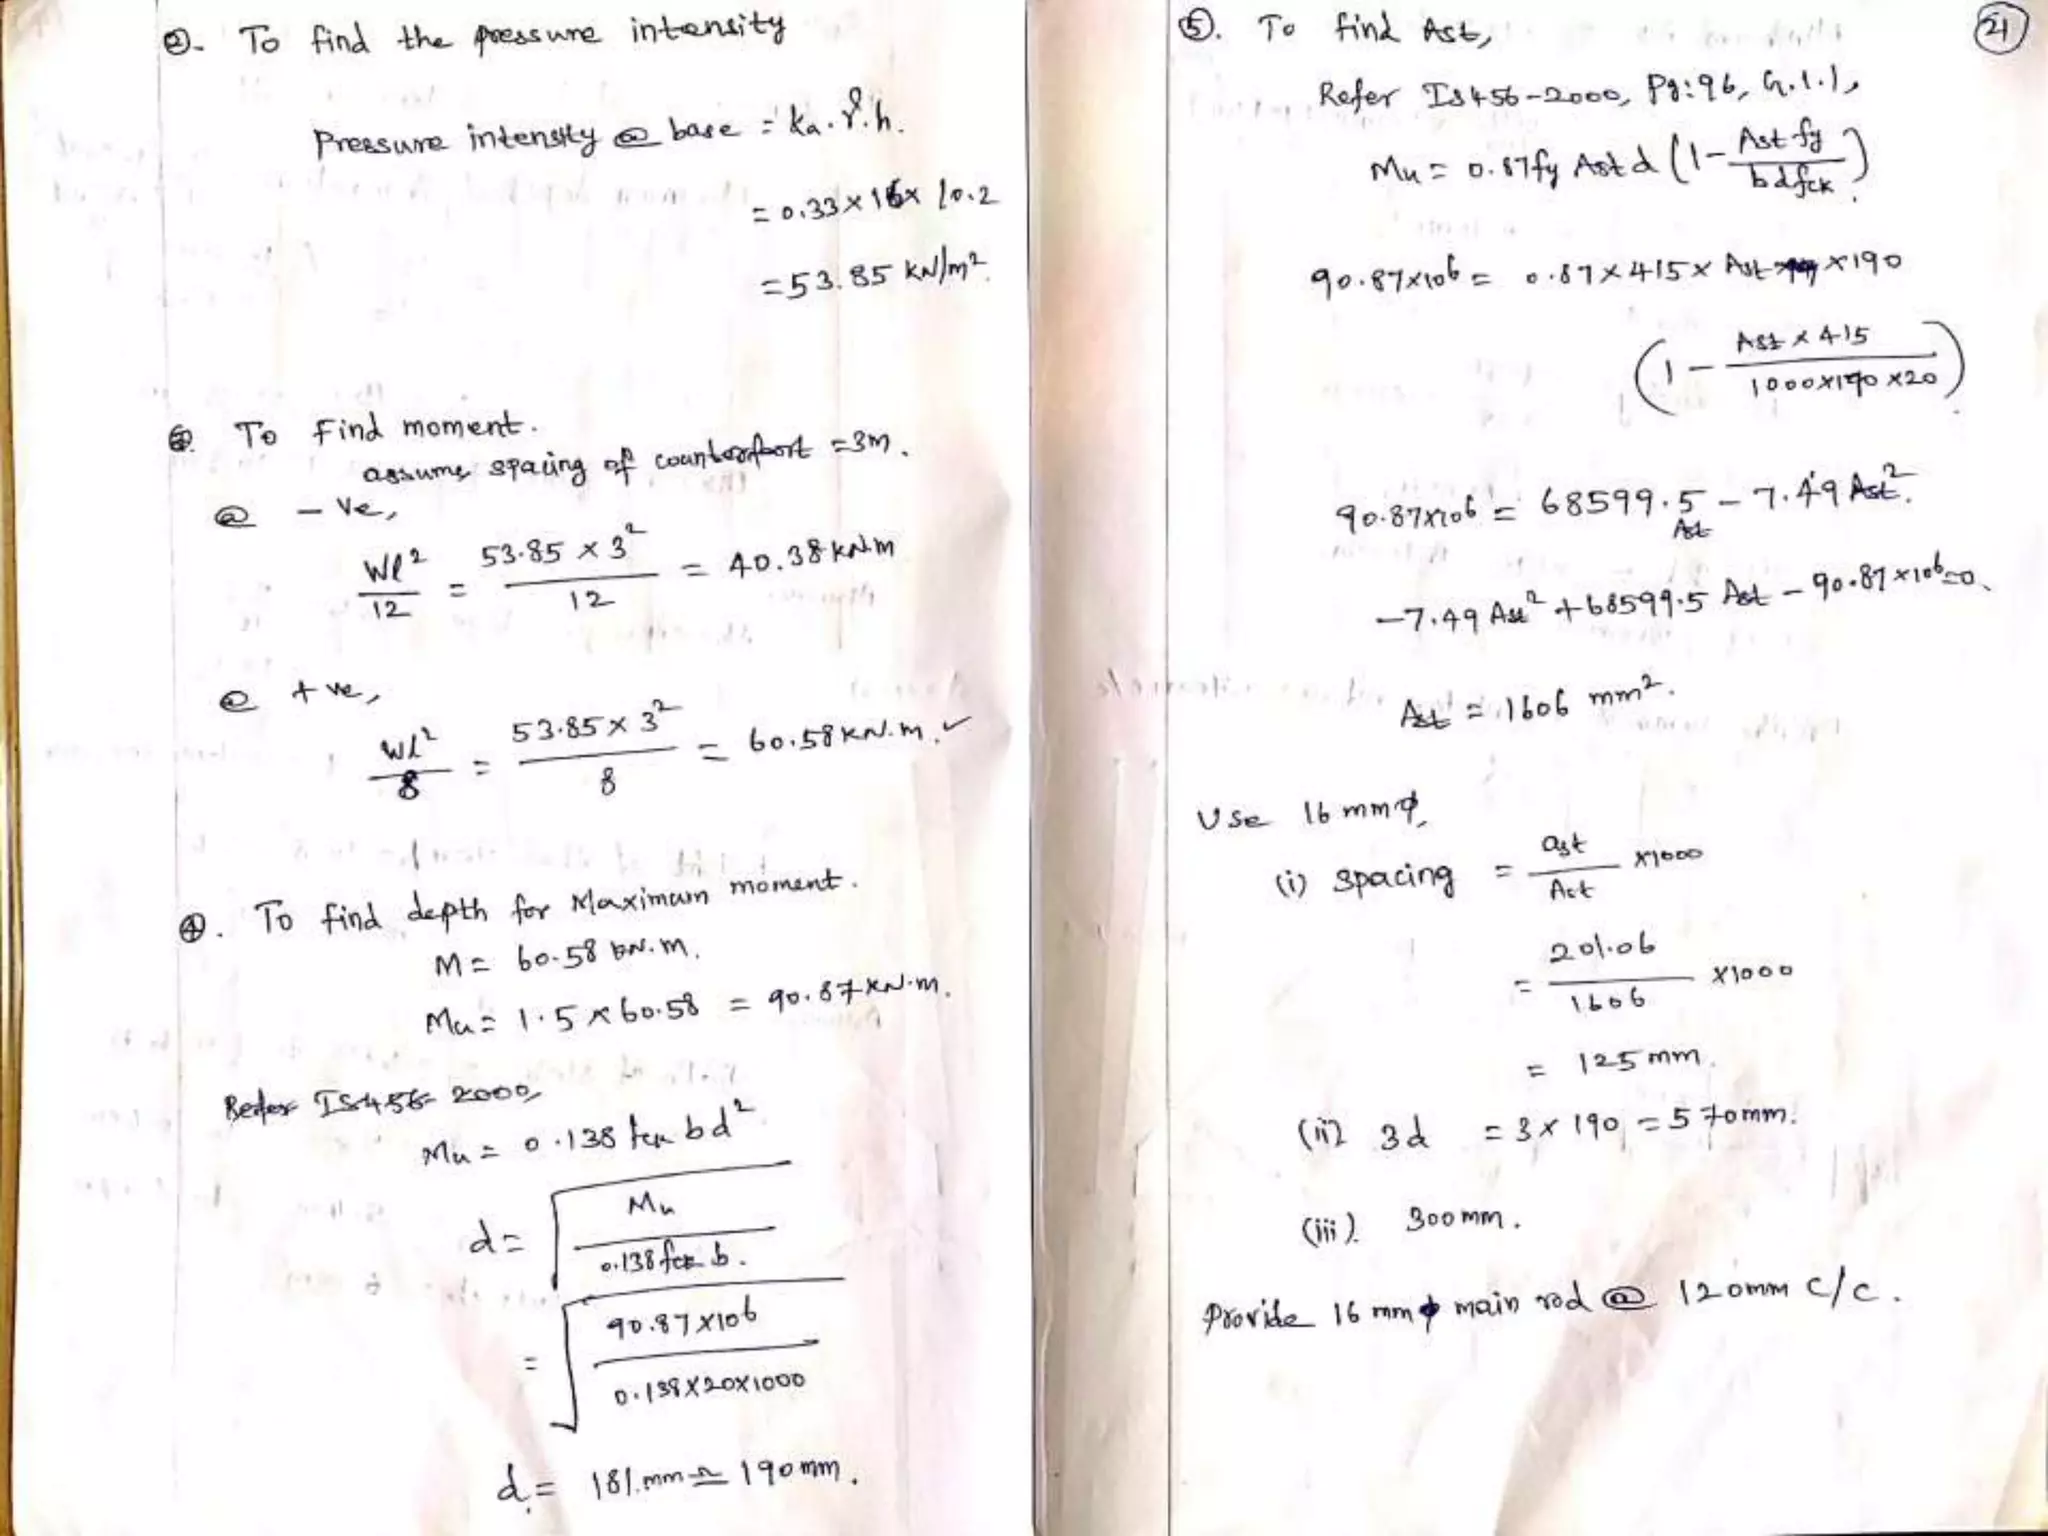 ②. To find the pressure intensity
Pressure intensity @ base = Ka.γ.h.
= 0.33 × 16 × 10.2
= 53.85 kN/m²
③. To Find moment.
assume spacing of counterfort = 3m.
@ -ve,
Wl²/12 = 53.85 × 3²/12 = 40.38 kN.m
@ +ve,
Wl²/8 = 53.85 × 3²/8 = 60.58 kN.m. ✓
④. To find depth for Maximum moment.
M = 60.58 kN.m.
Mu = 1.5 × 60.58 = 90.87 kN.m.
Refer IS456-2000,
Mu = 0.138 fck bd²
d = √(Mu/0.138 fck b.)
= √(90.87 × 10⁶/0.138 × 20 × 1000)
d = 181 mm ≃ 190 mm.
⑤. To find Ast, ㉑
Refer IS456-2000, Pg:96, G.1.1,
Mu = 0.87 fy Ast d (1 - Ast fy/bd fck)
90.87×10⁶ = 0.87 × 415 × Ast × 190
(1 - Ast × 415/1000×190×20)
90.87×10⁶ = 68599.5 Ast - 7.49 Ast².
-7.49 Ast² + 68599.5 Ast - 90.87×10⁶ = 0.
Ast = 1606 mm².
Use 16 mm ϕ,
(i) spacing = ast/Ast ×1000
= 201.06/1606 ×1000
= 125 mm.
(ii) 3d = 3 × 190 = 570 mm.
(iii). 300 mm.
Provide 16 mm ϕ main rod @ 120mm c/c.